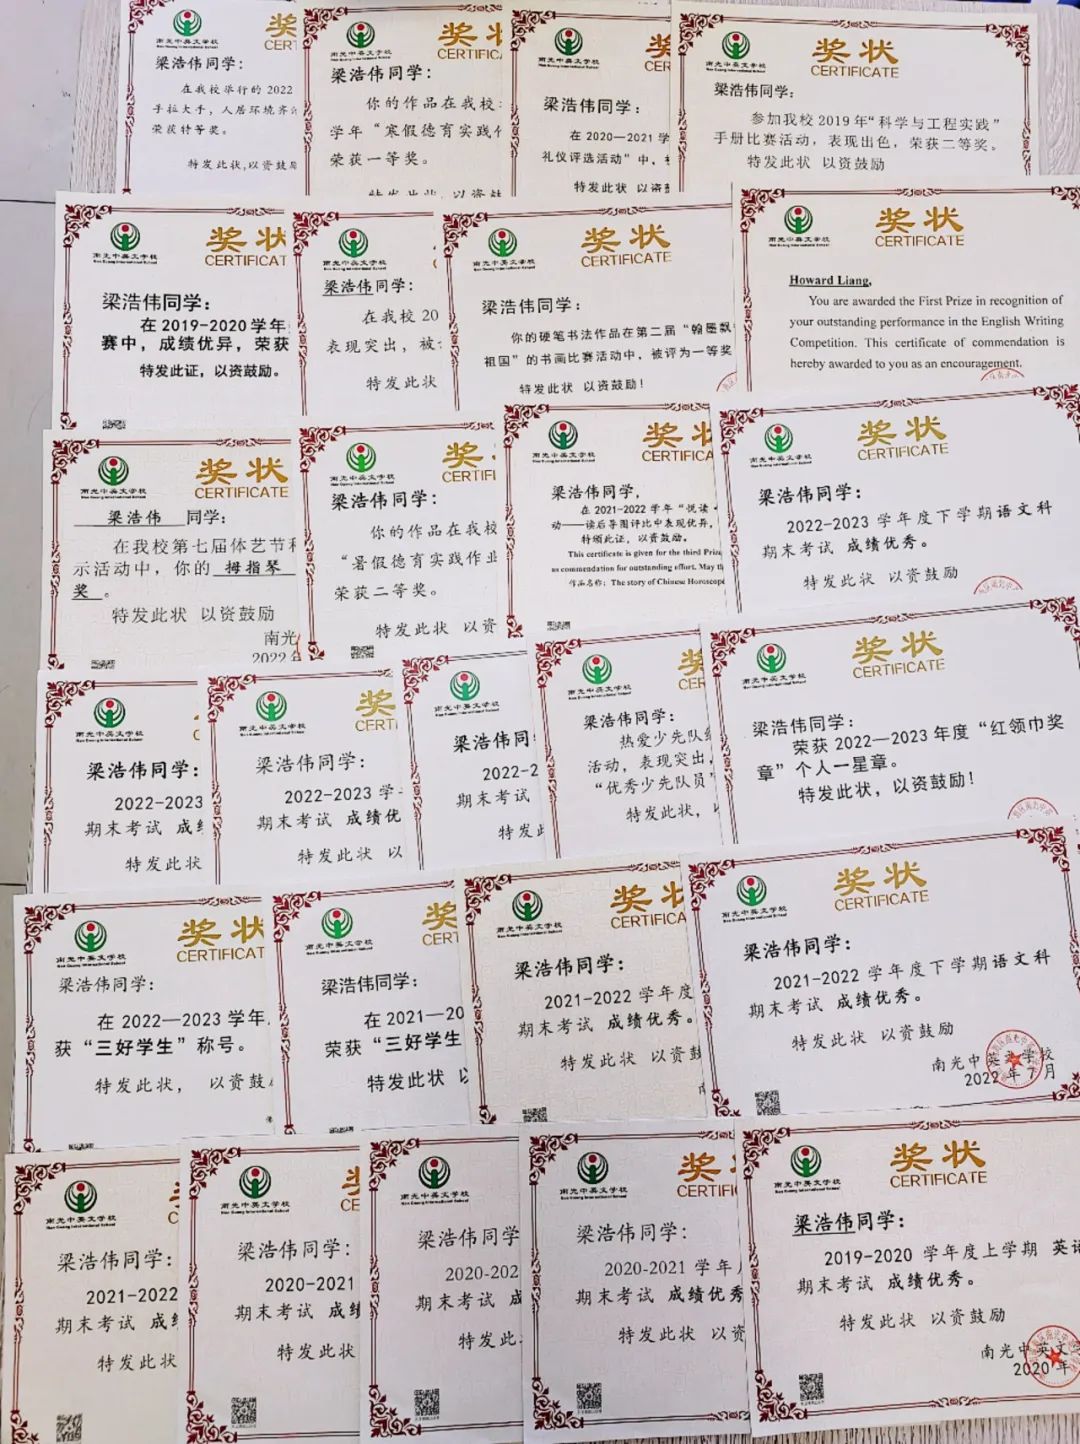 南光中英文学校
奖
CERT
梁浩伟同学：
在我校举行的2022
手拉大手，人居环境齐
荣获特等奖。
特发此状，以资鼓励
南光中英文学校
Nan Guang International School
奖状
CERTIFIC
梁浩伟同学：
你的作品在我校
学年“寒假德育实践作
荣获一等奖。
特发此状 以资
南光中英文学校
Nan Guang International School
奖
CER
梁浩伟同学：
在2020—2021学
礼仪评选活动”中，
特发此状 以资
南光中英文学校
Nan Guang International School
奖状
CERTIFICATE
梁浩伟同学：
参加我校2019年“科学与工程实践”
手册比赛活动，表现出色，荣获二等奖。
特发此状 以资鼓励
南光中英文学校
Nan Guang International School
奖状
CERTIFICAT
梁浩伟同学：
在2019-2020学年
赛中，成绩优异，荣获
特发此证，以资鼓励。
南光中英文学校
Nan Guang International School
梁浩伟同学：
在我校20
表现突出，被
特发此状
南光中英文学校
Nan Guang International School
奖状
CERTIFICATE
梁浩伟同学：
你的硬笔书法作品在第二届“翰墨飘
祖国”的书画比赛活动中，被评为一等奖
特发此状 以资鼓励！
南光中英文学校
Nan Guang International School
奖状
CERTIFICATE
Howard Liang,
You are awarded the First Prize in recognition of
your outstanding performance in the English Writing
Competition. This certificate of commendation is
hereby awarded to you as an encouragement.
南光中英文学校
Nan Guang International School
奖状
CERTIFICATE
梁浩伟 同学：
在我校第七届体艺节科
示活动中，你的 拇指琴
奖 。
特发此状 以资鼓励
南光
2022年
南光中英文学校
Nan Guang International School
奖
CERTIFI
梁浩伟同学：
你的作品在我校
“暑假德育实践作业
荣获二等奖。
特发此状 以资
南光中英文学校
Nan Guang International School
奖状
CERTIFICA
梁浩伟同学，
在2021-2022学年“悦读
动——读后导图评比中表现优异，
特颁此证，以资鼓励。
This certificate is given for the third Prize
as commendation for outstanding effort. May th
作品名称：The story of Chinese Horoscope
南光中英文学校
Nan Guang International School
奖状
CERTIFICATE
梁浩伟同学：
2022-2023 学年度下学期语文科
期末考试 成绩优秀。
特发此状 以资鼓励
南光中英文学校
Nan Guang International School
梁浩伟同学：
2022-2023
期末考试 成绩
特发此状
南光中英文学校
Nan Guang International School
奖
CERT
梁浩伟同学：
2022-2023 学
期末考试 成绩优
特发此状 以
南光中英文学校
Nan Guang International School
梁浩伟同
2022-2
期末考试
特发此
南光中英文学校
Nan Guang International School
奖
CER
梁浩伟同学：
热爱少先队组
活动，表现突出，
“优秀少先队员”
特发此状，
南光中英文学校
Nan Guang International School
奖状
CERTIFICATE
梁浩伟同学：
荣获2022—2023年度“红领巾奖
章”个人一星章。
特发此状，以资鼓励！
南光中英文学校
Nan Guang International School
奖状
CERTIFICAT
梁浩伟同学：
在2022—2023学年
获“三好学生”称号。
特发此状， 以资鼓
南光中英文学校
Nan Guang International School
奖
CERT
梁浩伟同学：
在2021—20
荣获“三好学生
特发此状 以
南光中英文学校
Nan Guang International School
奖状
CERTIFICA
梁浩伟同学：
2021-2022 学年度
期末考试 成绩优秀。
特发此状 以资鼓
南光中英文学校
Nan Guang International School
奖状
CERTIFICATE
梁浩伟同学：
2021-2022 学年度下学期语文科
期末考试 成绩优秀。
特发此状 以资鼓励
南光中英文学校
2022年7月
南光中英文学校
Nan Guang International School
C
梁浩伟同学：
2021-2022
期末考试 成绩
特发此状
南光中英文学校
Nan Guang International School
奖
CE
梁浩伟同学：
2020-2021
期末考试 成绩
特发此状
南光中英文学校
Nan Guang International School
梁浩伟同学
2020-202
期末考试 成
特发此
南光中英文学校
Nan Guang International School
奖状
CERTIFI
梁浩伟同学：
2020-2021 学年
期末考试 成绩优秀
特发此状 以资
南光中英文学校
Nan Guang International School
奖状
CERTIFICATE
梁浩伟同学：
2019-2020 学年度上学期 英语
期末考试 成绩优秀。
特发此状 以资鼓励
南光中英文
2020年